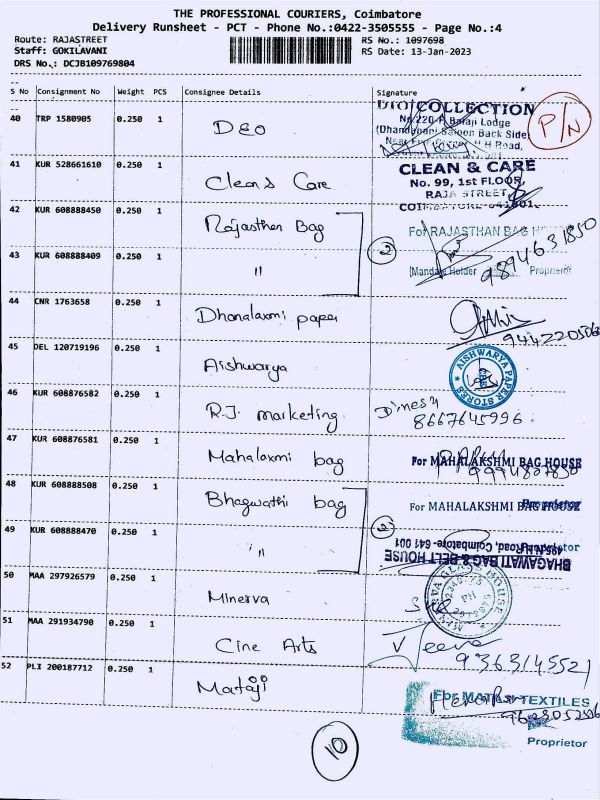 THE PROFESSIONAL COURIERS, Coimbatore
Delivery Runsheet - PCT - Phone No.:0422-3505555 - Page No.:4
Route: RAJASTREET
RS No.: 1097698
Staff: GOKILAVANI
RS Date: 13-Jan-2023
DRS No.: DCJB109769804
S No Consignment No Weight PCS Consignee Details Signature
40 TRP 1580905 0.250 1 DEO
COLLECTION
Balaji Lodge
Saloon Back Side
H Road,
P/N
41 KUR 528661610 0.250 1 Clean & Care
CLEAN & CARE
No. 99, 1st FLOOR,
RAJA STREET,
42 KUR 608888450 0.250 1 Rajasthan Bag
For RAJASTHAN BAG
2
9894631850
43 KUR 608888409 0.250 1 "
Holder Proprietor
44 CNR 1763658 0.250 1 Dhanalaxmi paper
45 DEL 120719196 0.250 1 Aishwarya
AISHWARYA PAPER STORES
46 KUR 608876582 0.250 1 R.J. marketing
Dinesh
8667645996
47 KUR 608876581 0.250 1 Mahalaxmi bag
For MAHALAKSHMI BAG HOUSE
48 KUR 608888508 0.250 1 Bhagwathi bag
For MAHALAKSHMI BAG HOUSE
Proprietor
2
49 KUR 608888470 0.250 1 "
Road, Coimbatore- 641 001
BHAGAWATI BAG & BELT HOUSE
50 MAA 297926579 0.250 1 Minerva
51 MAA 291934790 0.250 1 Cine Arts
Veera
9363145521
52 PLI 200187712 0.250 1 Mataji
For TEXTILES
Proprietor
10